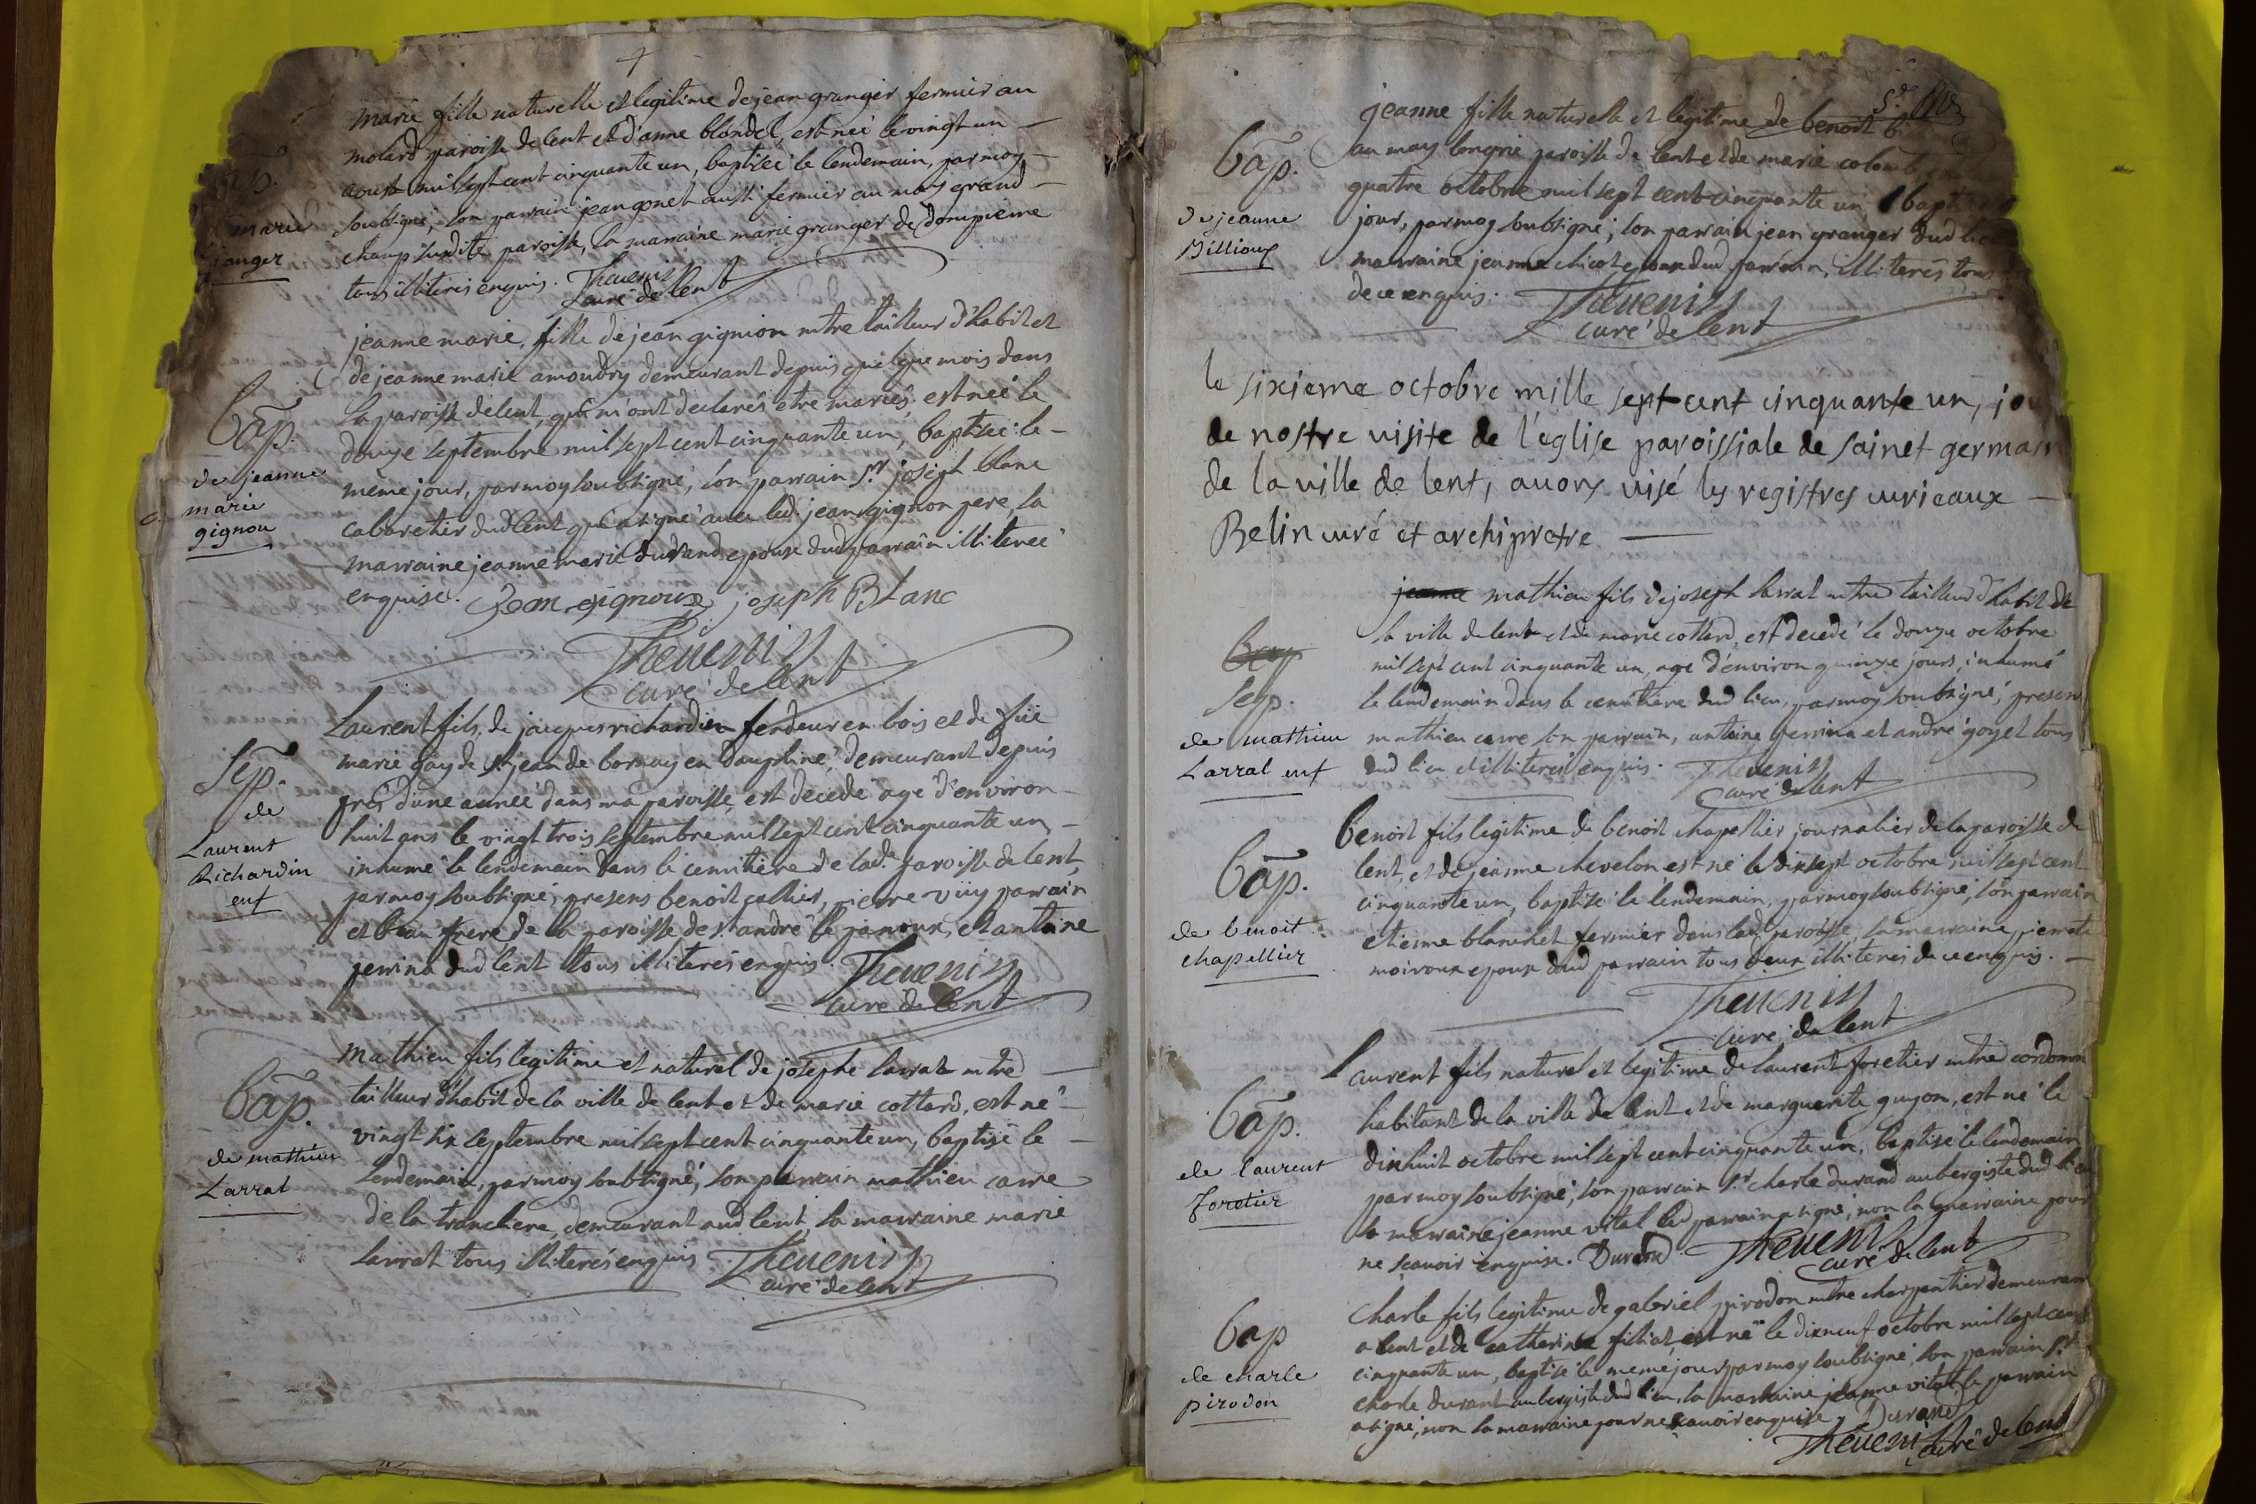 marie fille naturelle et legitime de jean granger fermier au
molard paroisse de lent et d'anne blondel, est neé le vingt un
aoust mil sept cent cinquante un, baptiseé le lendemain, par moy
soubsigné, son parrain jean gonet aussi fermier au mas grand
champ susdite paroisse, la marraine marie granger de dompierre
tous illiterés enquis. Thevenin
curé de lent
marie
granger
jeanne marie, fille de jean gignion mtre tailleur d'habit et
de jeanne marie amoudry demeurant depuis quelque mois dans
la paroisse de lent, qui m'ont declarés etre mariés. est neé le
douze septembre mil sept cent cinquante un, baptiseé le
meme jour, par moy soubsigné, son parrain Sr. joseph blanc
cabaretier dud lent qui a signé avec led. jean gignon pere, la
marraine jeanne marie durand epouse dud parrain illitereé
enquise. joseph Blanc
Thevenin
curé de lent
Bap.
de jeanne
marie
gignou
Laurent fils de jacques richardin fendeur en bois et de
marie gay de St jean de bornay en dauphiné, demeurant depuis
près d'une anneé dans ma paroisse, est decedé agé d'environ
huit ans le vingt trois septembre mil sept cent cinquante un
inhumé le lendemain dans le cemitiere de lad. paroisse de lent,
par moy soubsigné, presens benoit gallier, pierre parrain
et beau frere de la paroisse de St andré le panoux, et antoine
perrin dud lent tous illiterés enquis. Thevenin
curé de lent
Sep.
de
Laurent
Richardin
enf
Mathieu fils legitime et naturel de josephe larrat mtre
tailleur d'habit de la ville de lent et de marie cottard, est né
vingt six septembre mil sept cent cinquante un, baptisé le
lendemain, par moy soubsigné, son parrain mathieu carre
de la tranchere, demeurant aud lent, la marraine marie
larrat tous illiterés enquis Thevenin
curé de lent
Bap.
de mathieu
Larrat
jeanne fille naturelle et legitime de benoit
au mas longrie paroisse de lent et de marie
quatre octobre mil sept cent cinquante un,
jour, par moy soubsigné, son parrain jean granger dud
marraine jeanne chicot epouse dud parrain, illiterés tous
de ce enquis. Thevenin
curé de lent
Bap.
de jeanne
Billioux
le sixieme octobre mille sept cent cinquante un, jou
de nostre visite de l'eglise paroissiale de sainct germain
de la ville de lent, avons visé les registres curieaux
Belin curé et archipretre
jeanne mathieu fils de joseph larrat mtre tailleur d'habit de
la ville de lent et de marie cottard, est decedé le douze octobre
mil sept cent cinquante un, agé d'environ quinze jours, inhumé
le lendemain dans le cemitiere dud lieu, par moy soubsigné, presens
mathieu carre son parrain, antoine perrin et andré goyet tous
dud lieu et illiterés enquis. Thevenin
curé de lent
Bap
Sep.
de mathieu
Larrat enf
benoit fils legitime de benoit chapellier journalier de la paroisse de
lent, et de jeanne chevelon est né le dixsept octobre mil sept cent
cinquante un, baptisé le lendemain, par moy soubsigné, son parrain
etienne blanchet fermier dans lad. paroisse, la marraine pierrete
moiroux epouse dud parrain tous deux illiterés de ce enquis.
Thevenin
curé de lent
Bap.
de benoit
chapellier
Laurent fils naturel et legitime de laurent foretier mtre cordonn
habitant de la ville de lent et de marguerite guyon, est né le
dixhuit octobre mil sept cent cinquante un, baptisé le lendemain
par moy soubsigné, son parrain Sr. charle durand aubergiste dud lieu
la marraine jeanne vital led. parrain a signé, non la marraine pour
ne scavoir enquise. Durand Thevenin
curé de lent
Bap.
de laurent
foretier
Charle fils legitime de gabriel pirodon mtre charpentier demeurant
a lent et de catherine filiat, est né le dixneuf octobre mil sept cent
cinquante un, baptisé le meme jour par moy soubsigné, son parrain Sr.
charle durant aubergiste dud lieu, la marraine jeanne vital, le parrain
a signé, non la marraine pour ne scavoir enquise, Durand
Thevenin curé de lent
Bap
de charle
pirodon